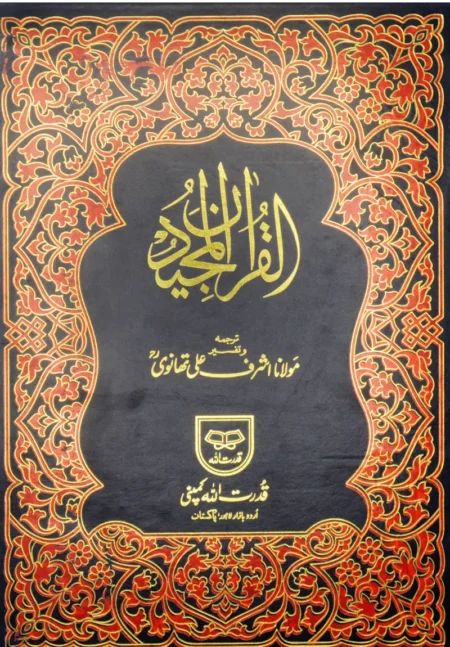 القرآن المجید
ترجمه
و تفسیر
مولانا اشرف علی تھانوی رح
قدرت الله
قدرت الله کمپنی
اردو بازار لاہور، پاکستان